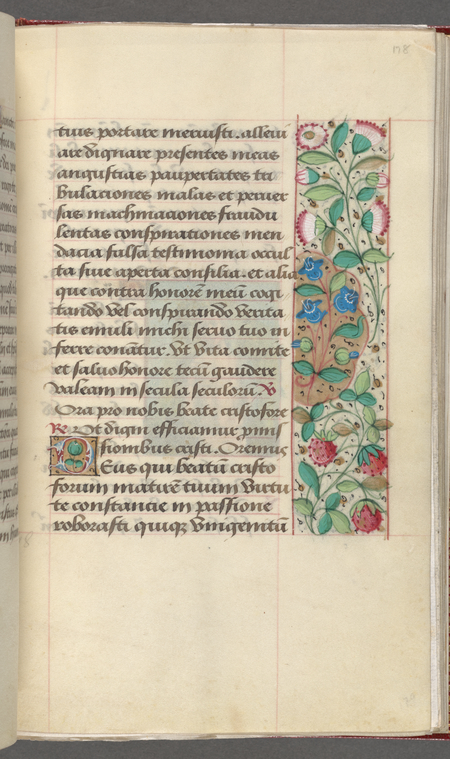 118
tuus portare meruisti. alleui
are dignare presentes meas
angustias paupertates tri
bulaciones malas et peruer
sas machinaciones fraudu
lentas conspirationes men
dacia falsa testimonia occul
ta siue aperta consilia. et alia
que contra honorē meū cogi
tando vel conspirando verita
tis emuli michi seruo tuo in
ferre conātur. Vt vita comite
et saluo honore tecū gaudere
valeam in secula seculorū. V
Ora pro nobis beate cristofore
R. Vt digni efficiamur pmis
sionibus cristi. Oremus
Deus qui beatū cristo
forum martirē tuum virtu
te constancie in passione
roborasti quiqz vnigenitū